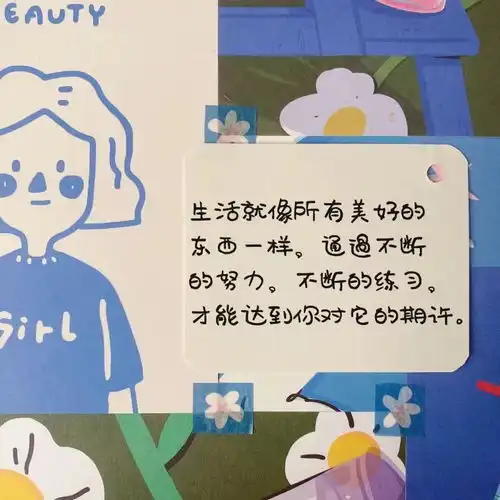 EAUTY
Girl
生活就像所有美好的
东西一样。通過不断
的努力。不断的练习。
才能达到你对它的期许。